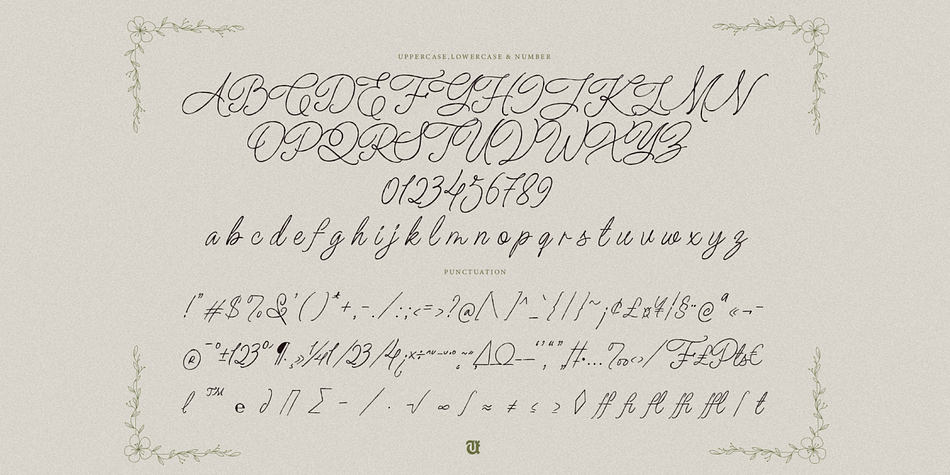 UPPERCASE,LOWERCASE & NUMBER
ABCDEFGHIJKLMN
OPQRSTUVWXYZ
0123456789
abcdefghijklmnopqrstuvwxyz
PUNCTUATION
!"#$%&'()*+,-./:;<=>?@[\]^_`{|}~¡¢£¤¥¦§¨©ª«¬-
®¯°±123ºµ¶·¸»¼1⁄23⁄4¿×÷ˆˇ˘˙˚˛˜˝ΔΩ–—''""‡•…‰‹›⁄₣₤₧€
ℓ ™ ℮ ∂ ∏ ∑ − ∕ ∙ √ ∞ ∫ ≈ ≠ ≤ ≥ ◊ ff fi fl ffi ffl ſ t
U